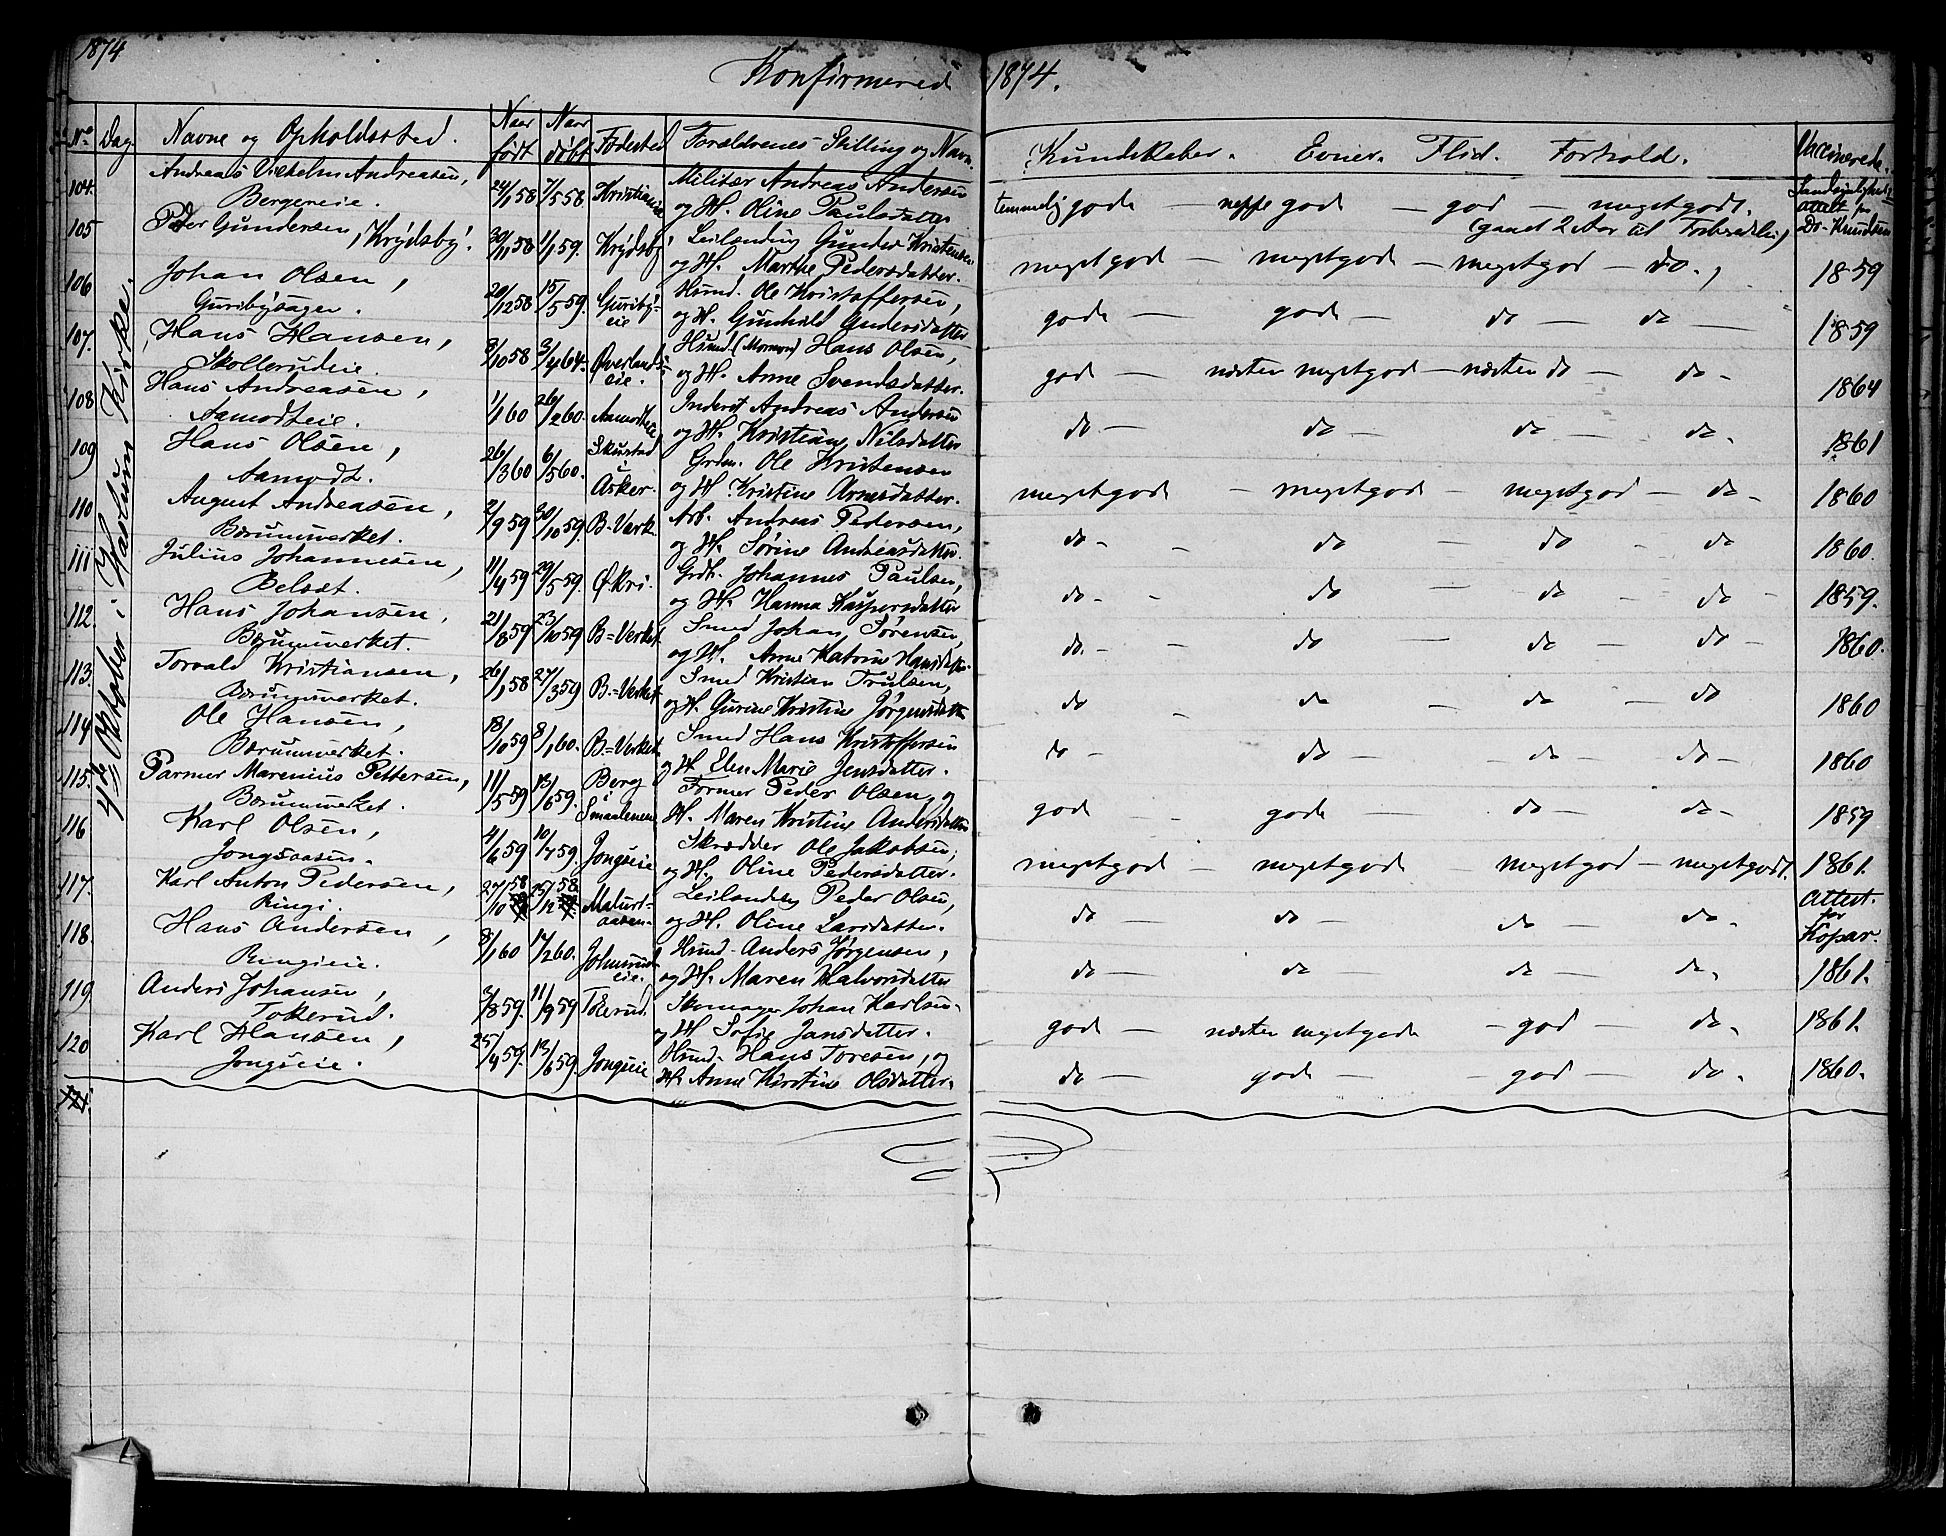 1874
Konfirmerede 1874.
No Dag. Navne og Opholdssted. Naar født Naar døbt Fødested Forældrenes Stilling og Navn. Kundskaber. Evner. Flid. Forhold. Vaccinerede.
4de Oktober i Haslum Kirke.
104. Andreas Vilhelm Andreasen, 24/1 58 7/5 58 Kristiania Militær Andreas Andersen temmelig gode — neppe gode — god — meget godt.
Bergereie. og H. Oline Paulsdatter (gaaet 2 Aar til Forberedelse) attest fr Dr. Knudsen
105 Peder Gundersen, Krydsby. 30/11 58 1/1 59. Krydsby Leilænding Gunder Kristensen meget gode — meget gode — meget god — do., 1859
og H. Marthe Pedersdatter.
106 Johan Olsen, 20/12 58 15/5 59. Guriby- Husmd. Ole Kristoffersen, gode — gode — do — do — 1859
Guribysagen. eie og H. Gunhild Andersdatter
107. Hans Hansen, 8/10 58 3/4 64. Øverlands- Husmd (Mormon) Hans Olsen, god — næsten meget god — næsten do — do - 1864
Skollerudeie. eie. og H. Anne Svendsdatter.
108 Hans Andreasen, 1/1 60 26/2 60. Aamodt- Inderst Andreas Andersen do — do — do — do. 1861
Aamodteie. eie og H. Kristiane Nilsdatter
109 Hans Olsen, 26/3 60 6/5 60. Skustad Grdm. Ole Kristensen meget gode — meget gode — meget god — do - 1860
Aamodt. i Asker. og H Kristine Arnesdatter.
110 August Andreasen, 2/9 59 30/10 59 B=Verk. Arb. Andreas Pedersen, do - - do - do - do 1860.
Bærumsverket. og H. Sørine Andreasdatter
111 Julius Johannesen, 11/4 59 29/5 59. Økri. Grdb. Johannes Paulsen, do - - do - do - do 1859.
Belset. og H. Hanna Kaspersdatter
112. Hans Johansen, 21/8 59 23/10 59 B=Verket Smed Johan Sørensen, do. - - do - do - do - 1860.
Bærumsverket. og H. Anne Katrine Hansdatter.
113. Torvald Kristiansen, 26/1 58 27/3 59 B.=Verket Smed Kristian Trulsen, do - do - do - do 1860
Bærumsverket. og H. Gurine Kristine Jørgensdatter
114 Ole Hansen, 18/10 59 8/1 60. B=Verket Smed Hans Kristoffersen do - do - do - do - 1860
Bærumsverket. og H Elen Marie Jensdatter.
115. Parmer Marenius Pettersen, 11/5 59 13/6 59. Borg Former Peder Olsen, og god - - gode — do — do - 1859
Bærumsverket. Smaalenene H. Maren Kristine Andersdatter
116 Karl Olsen, 4/6 59 10/7 59. Jongseie Skrædder Ole Jakobsen, meget god — meget gode meget god — meget godt. 1861.
Jongsaasen. og H. Oline Pedersdatter.
117. Karl Anton Pedersen, 27/10 58 15/12 58 Leilænding Peder Olsen, do — do — do — do. Attest. for Kopar.
Ringi. aasen. og H. Oline Larsdatter.
118. Hans Andersen, 8/1 60 17/2 60. Johnsrud- Husmd. Anders Jørgensen, do — do do — do. 1861.
Ringieie. eie. og H. Maren Halvorsdatter
119 Anders Johansen, 3/8 59. 11/9 59 Tokerud. Skomager Johan Karlsen. god — næsten meget gode — god — do. 1861.
Tokerud. og H. Sofie Jansdatter.
120 Karl Hansen, 25/4 59. 13/6 59. Jongseie Husmd. Hans Toresen, og do — gode — god — do. 1860.
Jongseie. H. Anne Kirstine Olsdatter.
121.